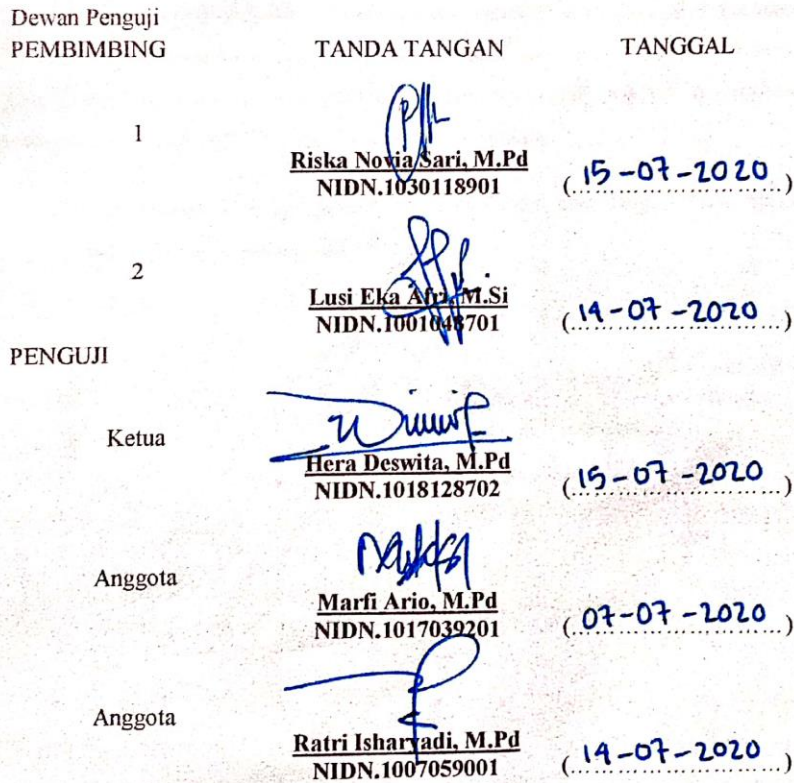 Dewan Penguji
PEMBIMBING TANDA TANGAN TANGGAL
1
Riska Novia Sari, M.Pd
NIDN.1030118901 (15-07-2020)
2
Lusi Eka Afri, M.Si
NIDN.1001048701 (14-07-2020)
PENGUJI
Ketua
Hera Deswita, M.Pd
NIDN.1018128702 (15-07-2020)
Anggota
Marfi Ario, M.Pd
NIDN.1017039201 (07-07-2020)
Anggota
Ratri Isharyadi, M.Pd
NIDN.1007059001 (14-07-2020)